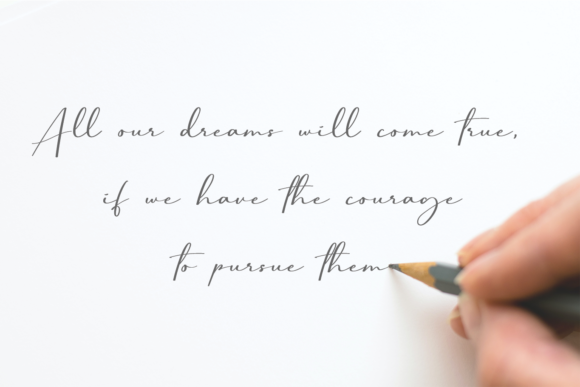 All our dreams will come true,
if we have the courage
to pursue them